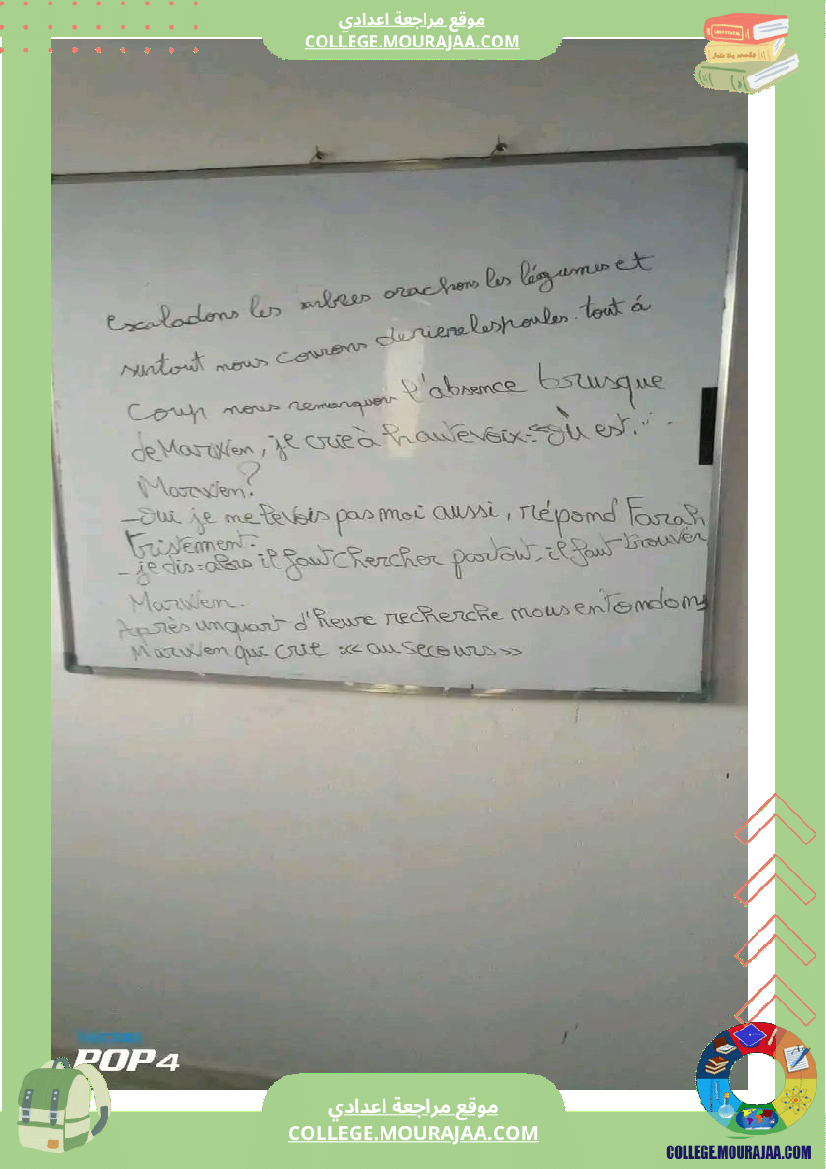 موقع مراجعة اعدادي
COLLEGE.MOURAJAA.COM
escaladons les arbres arachons les légumes et
surtout nous courons deriere les poules. tout à
coup nous remarquons l'absence brusque
de Marwen, je crie à haute voix: Où est...
Marwen?
- Oui je ne le vois pas moi aussi, répond Farah
tristement.
- je dis: alors il faut chercher partout, il faut trouver
Marwen.
Après un quart d'heure recherche nous entendons
Marwen qui crie :<< au secours>>
POP 4
موقع مراجعة اعدادي
COLLEGE.MOURAJAA.COM
COLLEGE.MOURAJAA.COM